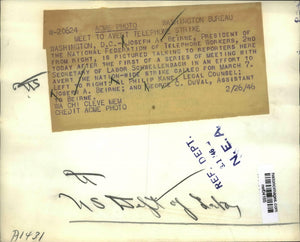 W-20624 ACME PHOTO WASHINGTON BUREAU
MEET TO AVERT TELEPHONE STRIKE
WASHINGTON, D.C.--JOSEPH A. BEIRNE, PRESIDENT OF
THE NATIONAL FEDERATION OF TELEPHONE WORKERS, 2ND
FROM RIGHT, IS PICTURED TALKING TO REPORTERS HERE
TODAY AFTER THE FIRST OF A SERIES OF MEETING WITH
SECRETARY OF LABOR SCHWELLENBACH IN AN EFFORT TO
AVERT THE NATION-WIDE STRIKE CALLED FOR MARCH 7.
LEFT TO RIGHT: PHILIP KANE, LEGAL COUNSEL;
JOSEPH A. BEIRNE; AND GEORGE C. DUVAL, ASSISTANT
TO BEIRNE.
WA CHI CLEVE NEM
CREDIT ACME PHOTO 2/26/46
US
REF. DEPT.
N.E.A.
US Dept of
A1431